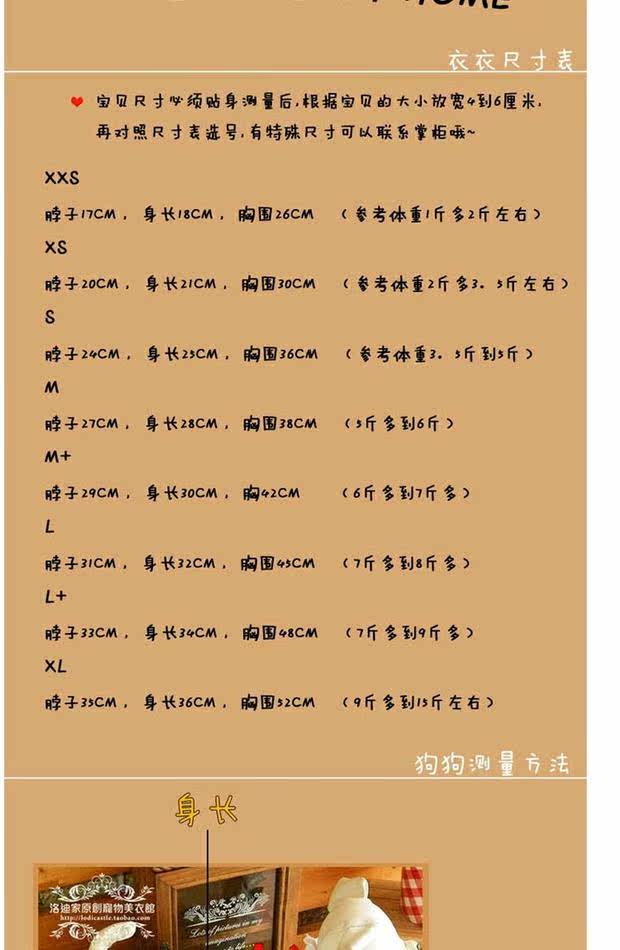 HOME
衣衣尺寸表
宝贝尺寸必须贴身测量后,根据宝贝的大小放宽4到6厘米,
再对照尺寸表选号,有特殊尺寸可以联系掌柜哦~
XXS
脖子17CM, 身长18CM, 胸围26CM (参考体重1斤多2斤左右)
XS
脖子20CM, 身长21CM, 胸围30CM (参考体重2斤多3。5斤左右)
S
脖子24CM, 身长25CM, 胸围36CM (参考体重3。5斤到5斤)
M
脖子27CM, 身长28CM, 胸围38CM (5斤多到6斤)
M+
脖子29CM, 身长30CM, 胸42CM (6斤多到7斤多)
L
脖子31CM, 身长32CM, 胸围45CM (7斤多到8斤多)
L+
脖子33CM, 身长34CM, 胸围48CM (7斤多到9斤多)
XL
脖子35CM, 身长36CM, 胸围52CM (9斤多到15斤左右)
狗狗测量方法
身长
洛迪家原創寵物美衣館
http://lodicastle.taobao.com
Lots of pictures in my
imagination